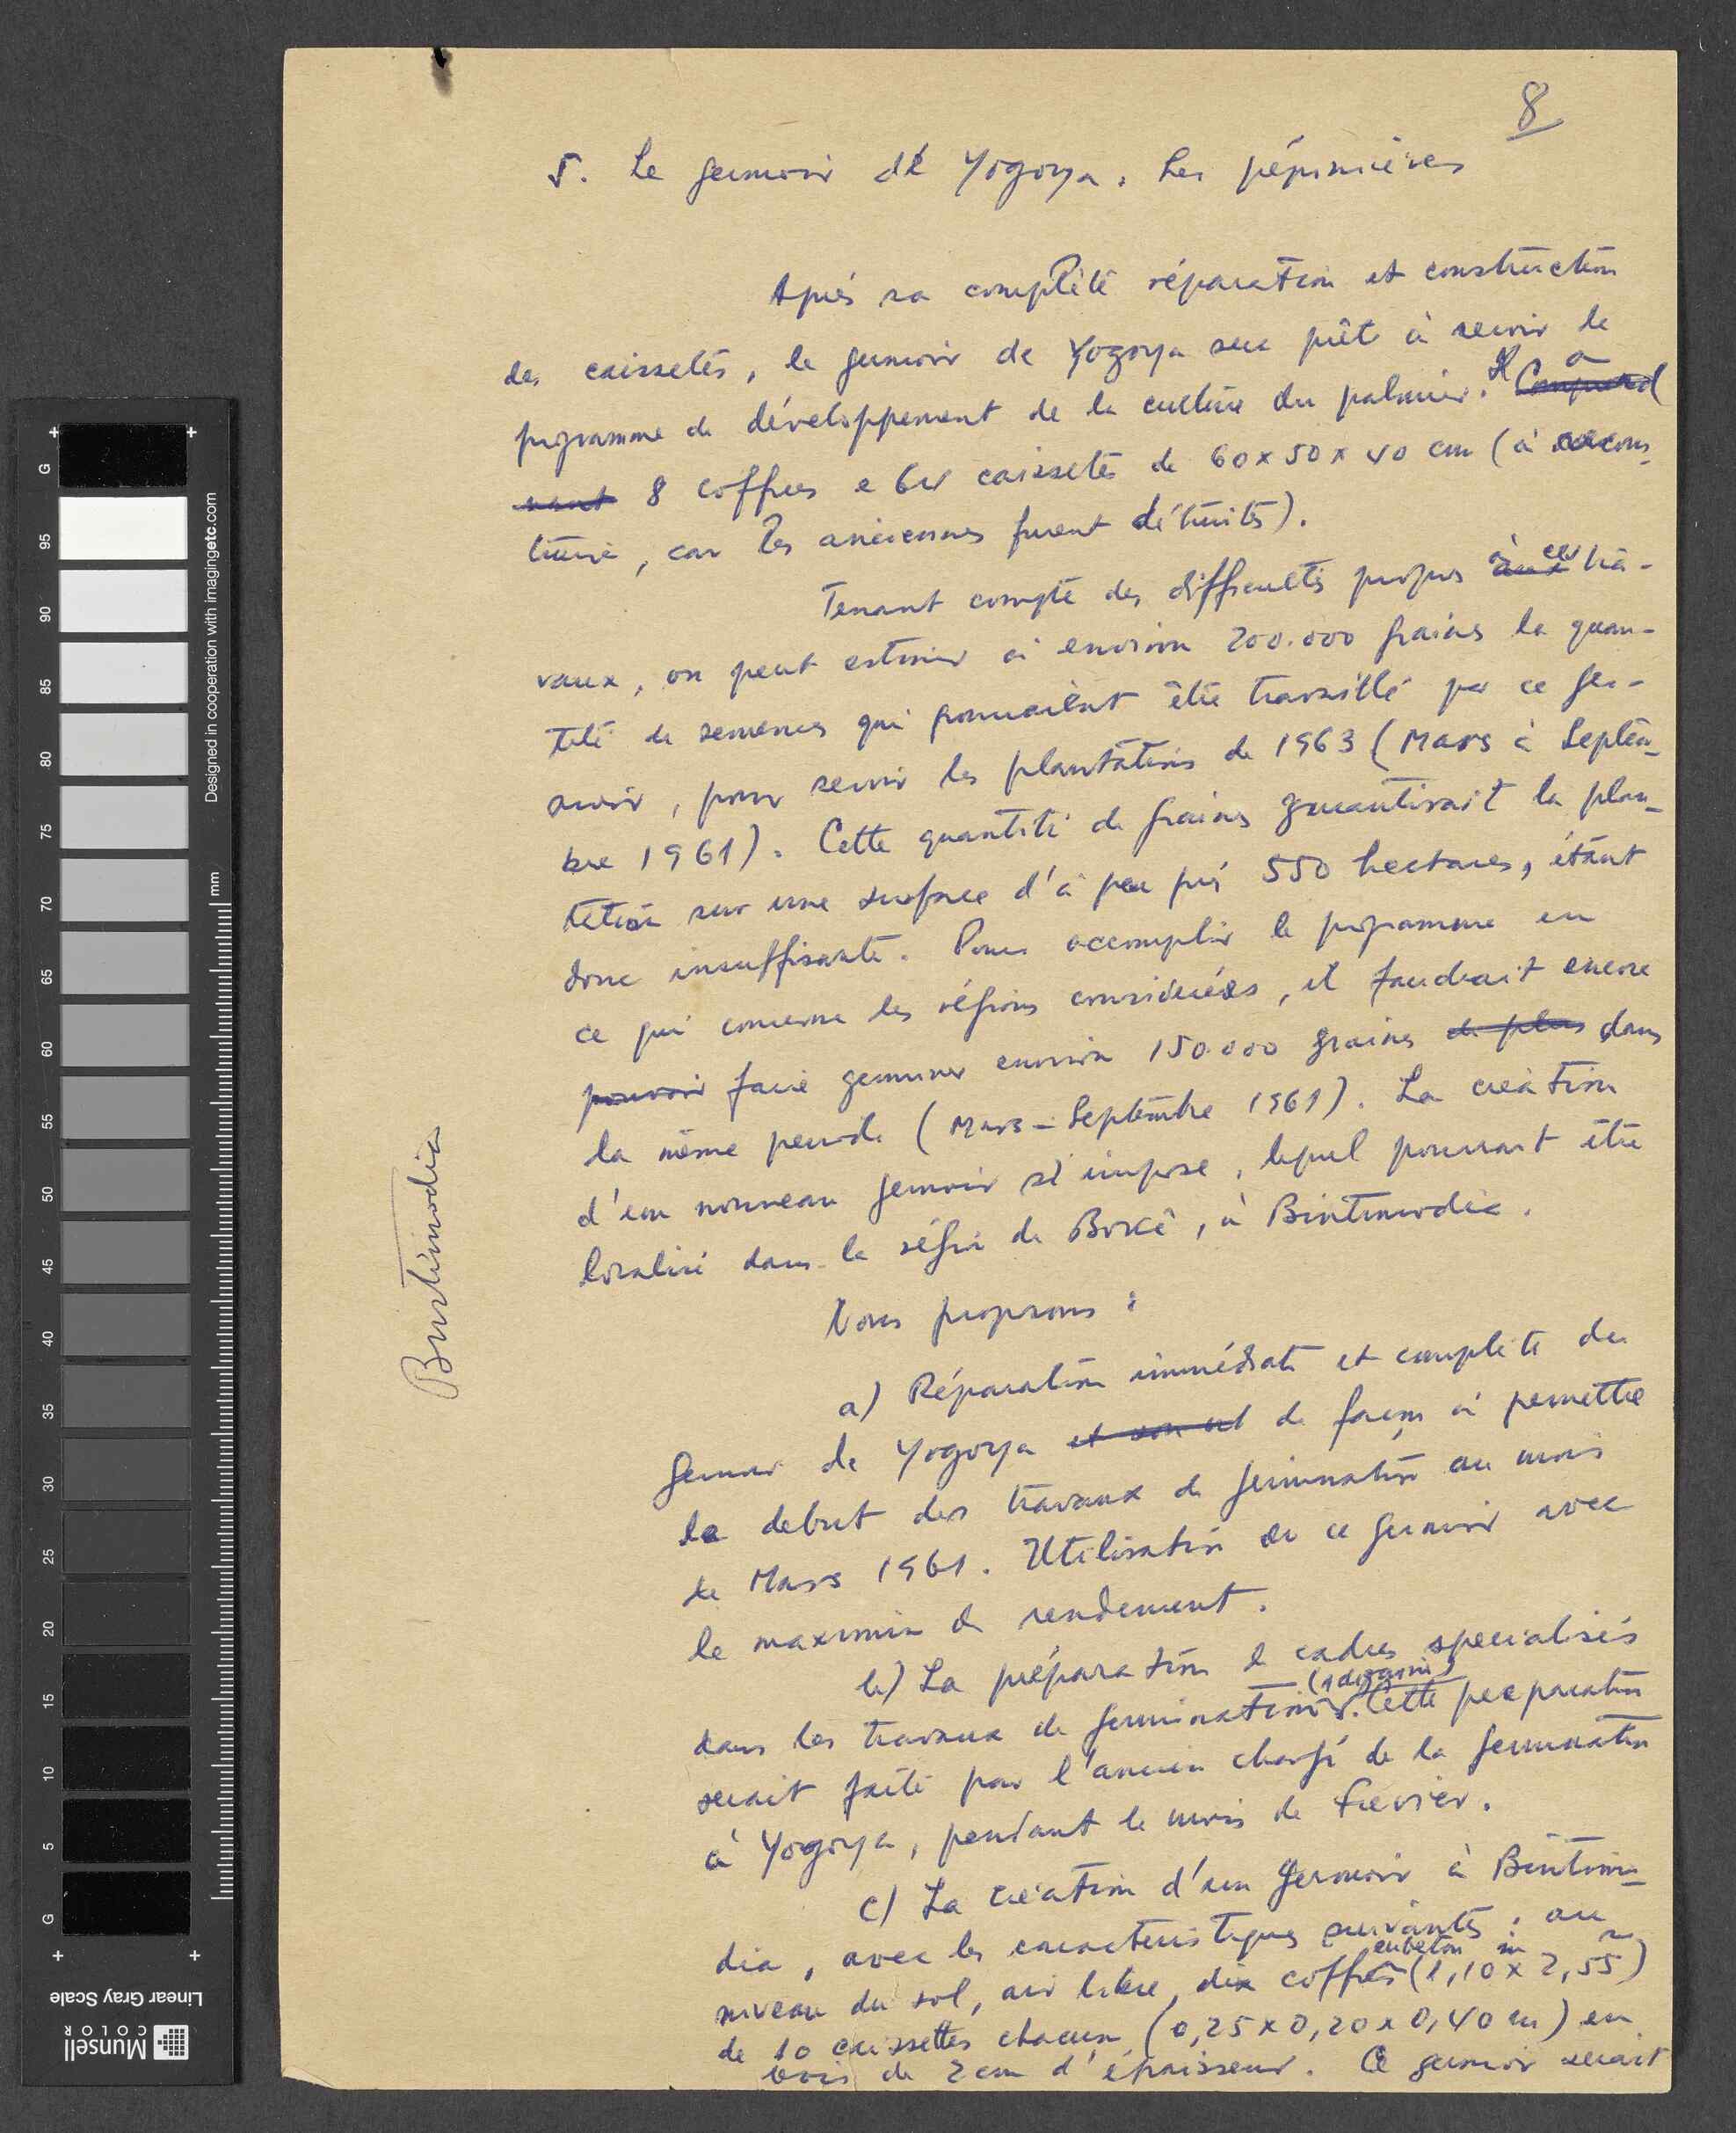 8
5. Le germoir de Yogoya. Les pépinières
Après sa complète réparation et construction
des caissetes, le germoir de Yogoya sera prêt à servir le
programme de développement de la culture du palmier. Il a
8 coffres e 64 caissetes de 60 x 50 x 40 cm (à recons-
truire, car les anciennes furent détruites).
Tenant compte des difficultés propres à ces tra-
vaux, on peut estimer à environ 200.000 graines la quan-
tité de semences qui pourraient être travaillé par ce ger-
moir, pour servir les plantations de 1963 (Mars à Septem-
bre 1961). Cette quantité de graines garantirait la plan-
tation sur une surface d'à peu près 550 hectares, étant
donc insuffisante. Pour accomplir le programme en
ce qui concerne les régions considérées, il faudrait encore
faire germer environ 150.000 graines dans
la même période (Mars-Septembre 1961). La création
d'un nouveau germoir s'impose, lequel pourrait être
localisé dans la région de Boké, à Bintimodia.
Bintimodia
Nous proposons :
a) Réparation immédiate et complète du
germoir de Yogoya de façon à permettre
le debut des travaux de germination au mois
de Mars 1961. Utilisation de ce germoir avec
le maximum de rendement.
b) La préparation de cadres specialisés
dans les travaux de germination. Cette preparation
serait faite par l'ancien chargé de la germination
à Yogoya, pendant le mois de fevrier.
c) La création d'un germoir à Bintimo-
dia, avec les caracteristiques suivantes : au
niveau du sol, air libre, dix coffres en beton (1,10 x 2,55 m)
de 10 caissettes chacun (0,25 x 0,20 x 0,40 m) en
bois de 2 cm d'épaisseur. Ce germoir serait
G
95
90
85
80
75
70
65
60
55
50
45
40
35
30
25
20
15
10
5
G
mm
Designed in cooperation with imagingetc.com
Linear Gray Scale
Munsell
COLOR